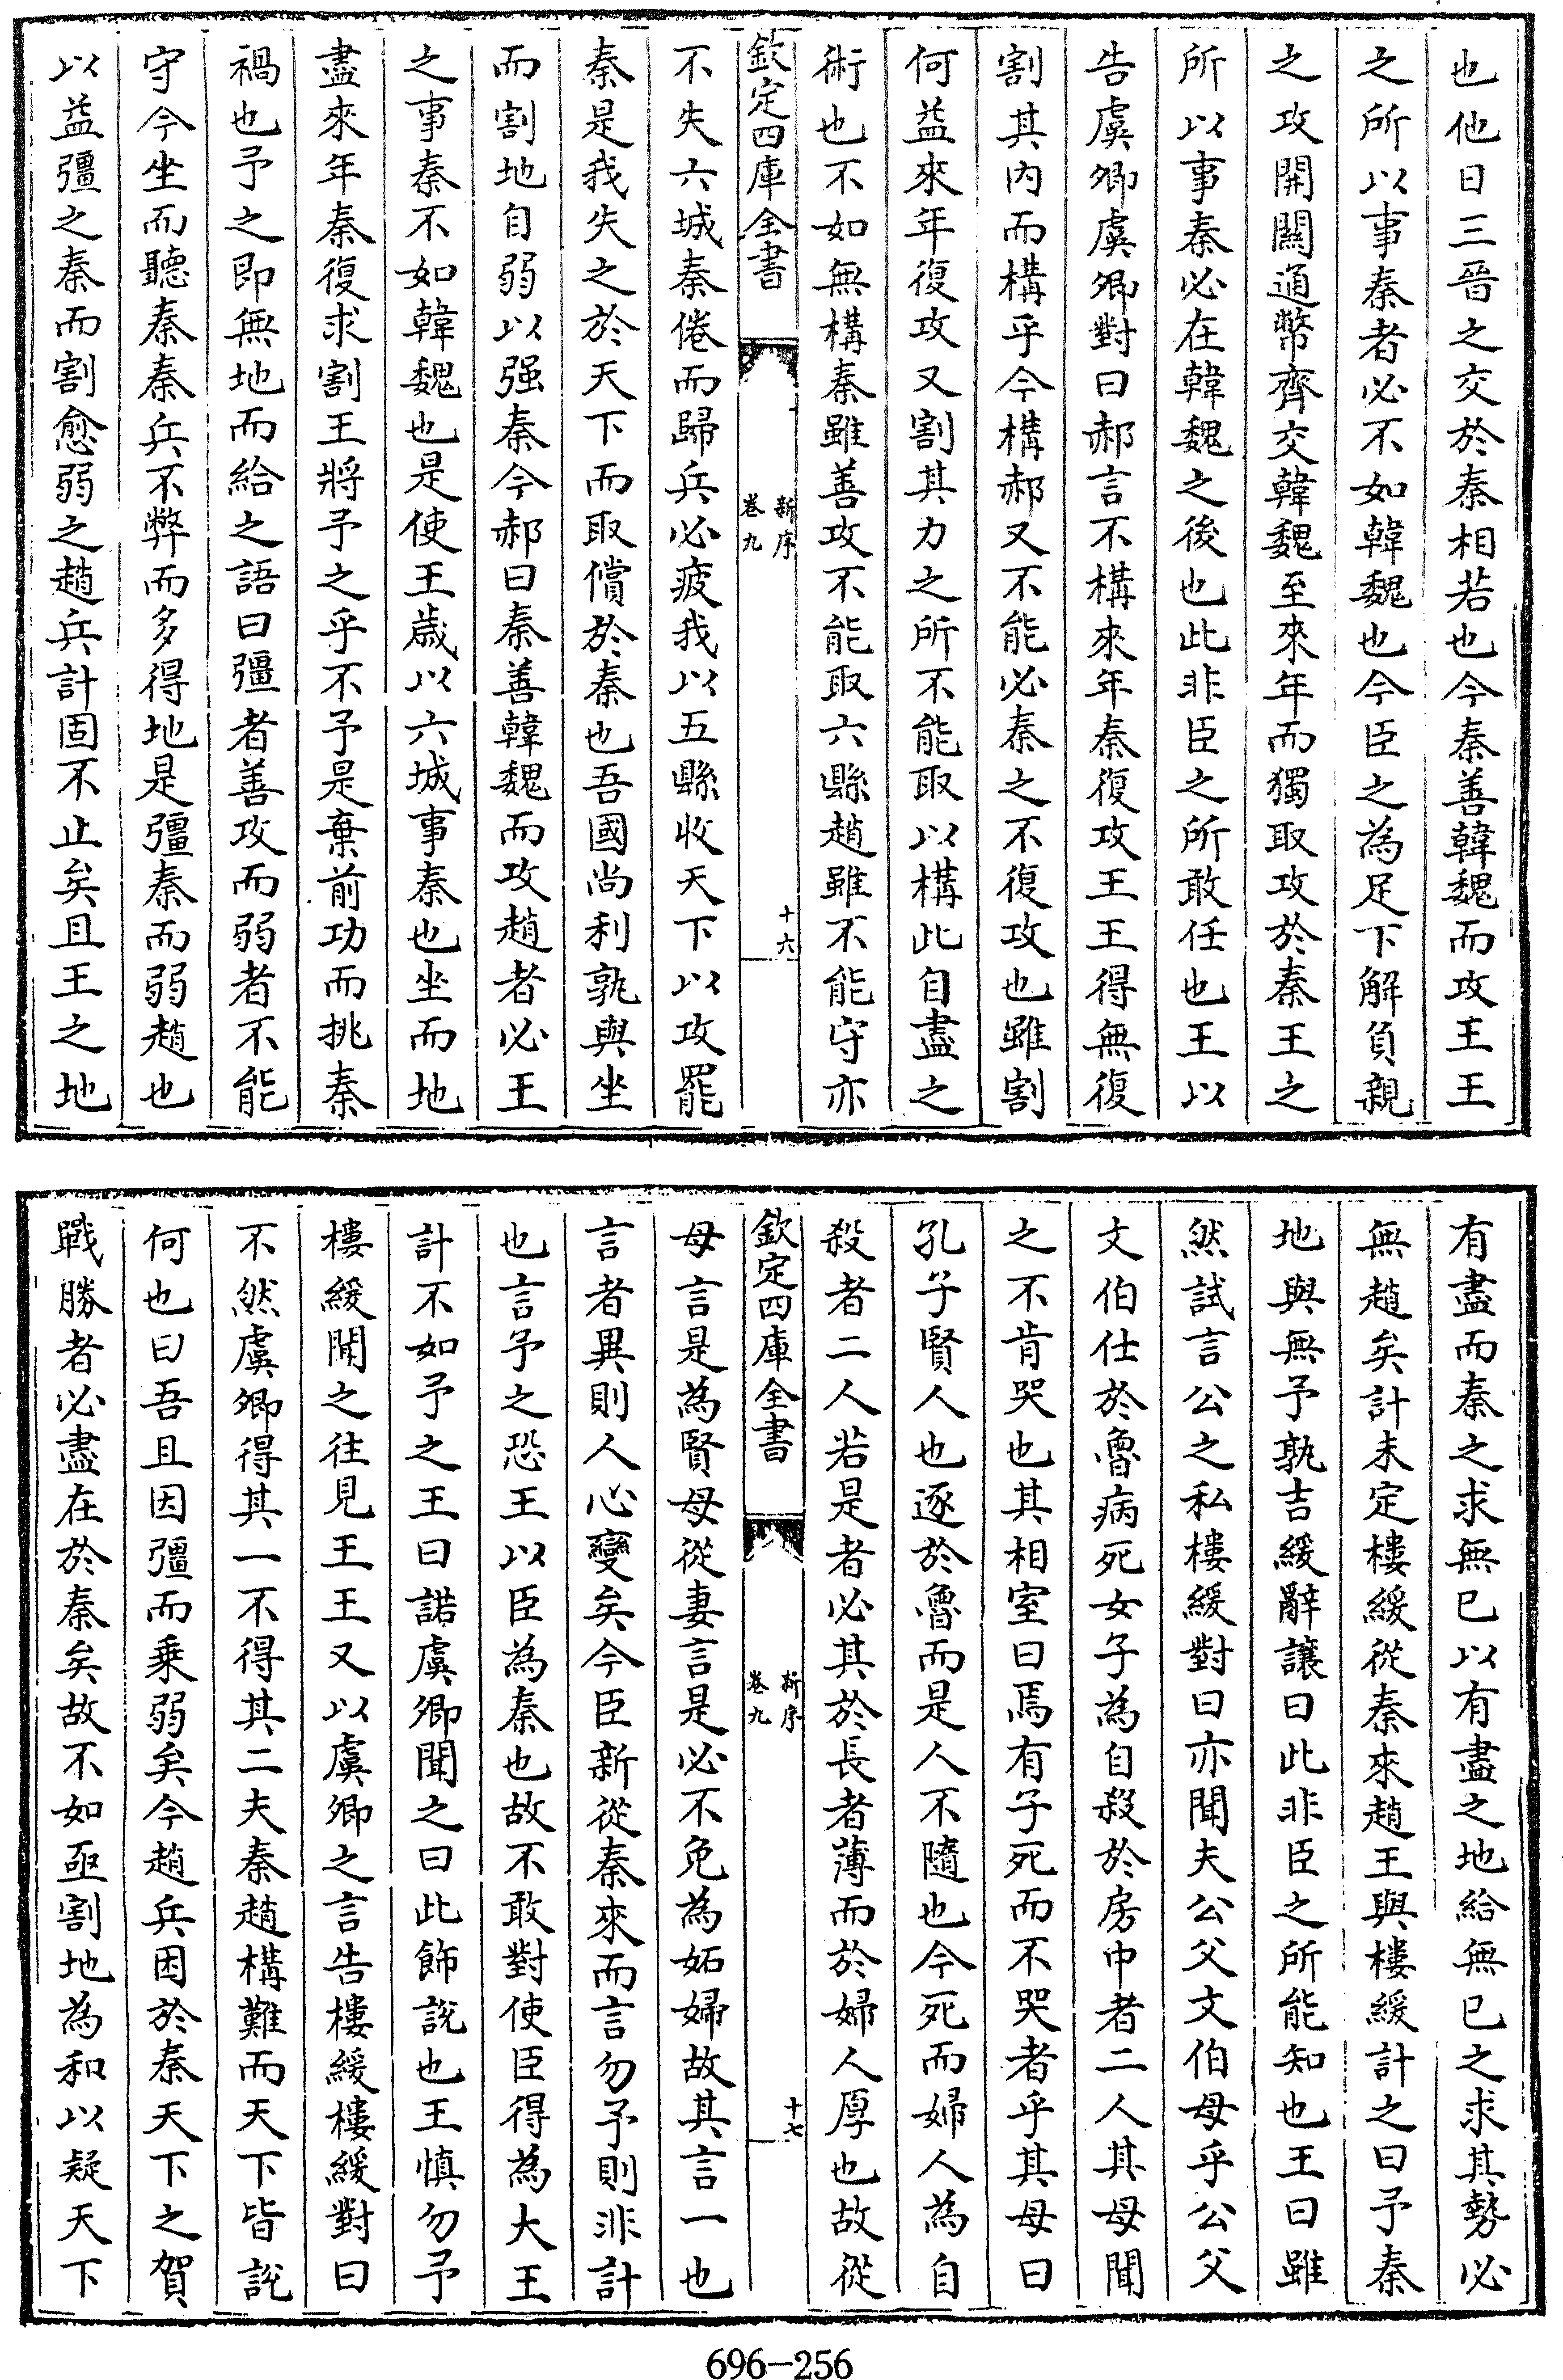 也他日三晉之交於秦相若也今秦善韓魏而攻王王
之所以事秦者必不如韓魏也今臣之為足下解負親
之攻開關通幣齊交韓魏至來年而獨取攻於秦王之
所以事秦必在韓魏之後也此非臣之所敢任也王以
告虞卿虞卿對曰郝言不構來年秦復攻王王得無復
割其內而構乎今構郝又不能必秦之不復攻也雖割
何益來年復攻又割其力之所不能取以構此自盡之
術也不如無構秦雖善攻不能取六縣趙雖不能守亦
欽定四庫全書
新序
卷九
十六
不失六城秦倦而歸兵必疲我以五縣收天下以攻罷
秦是我失之於天下而取償於秦也吾國尚利孰與坐
而割地自弱以强秦今郝曰秦善韓魏而攻趙者必王
之事秦不如韓魏也是使王歲以六城事秦也坐而地
盡來年秦復求割王將予之乎不予是棄前功而挑秦
禍也予之即無地而給之語曰彊者善攻而弱者不能
守今坐而聽秦秦兵不弊而多得地是彊秦而弱趙也
以益彊之秦而割愈弱之趙兵計固不止矣且王之地
有盡而秦之求無已以有盡之地給無已之求其勢必
無趙矣計未定樓緩從秦來趙王與樓緩計之曰予秦
地與無予孰吉緩辭讓曰此非臣之所能知也王曰雖
然試言公之私樓緩對曰亦聞夫公父文伯母乎公父
文伯仕於魯病死女子為自殺於房中者二人其母聞
之不肯哭也其相室曰焉有子死而不哭者乎其母曰
孔子賢人也逐於魯而是人不隨也今死而婦人為自
殺者二人若是者必其於長者薄而於婦人厚也故從
欽定四庫全書
新序
卷九
十七
母言是為賢母從妻言是必不免為妬婦故其言一也
言者異則人心變矣今臣新從秦來而言勿予則非計
也言予之恐王以臣為秦也故不敢對使臣得為大王
計不如予之王曰諾虞卿聞之曰此飾說也王慎勿予
樓緩聞之往見王王又以虞卿之言告樓緩樓緩對曰
不然虞卿得其一不得其二夫秦趙構難而天下皆說
何也曰吾且因彊而乗弱矣今趙兵困於秦天下之賀
戰勝者必盡在於秦矣故不如亟割地為和以疑天下
696-256